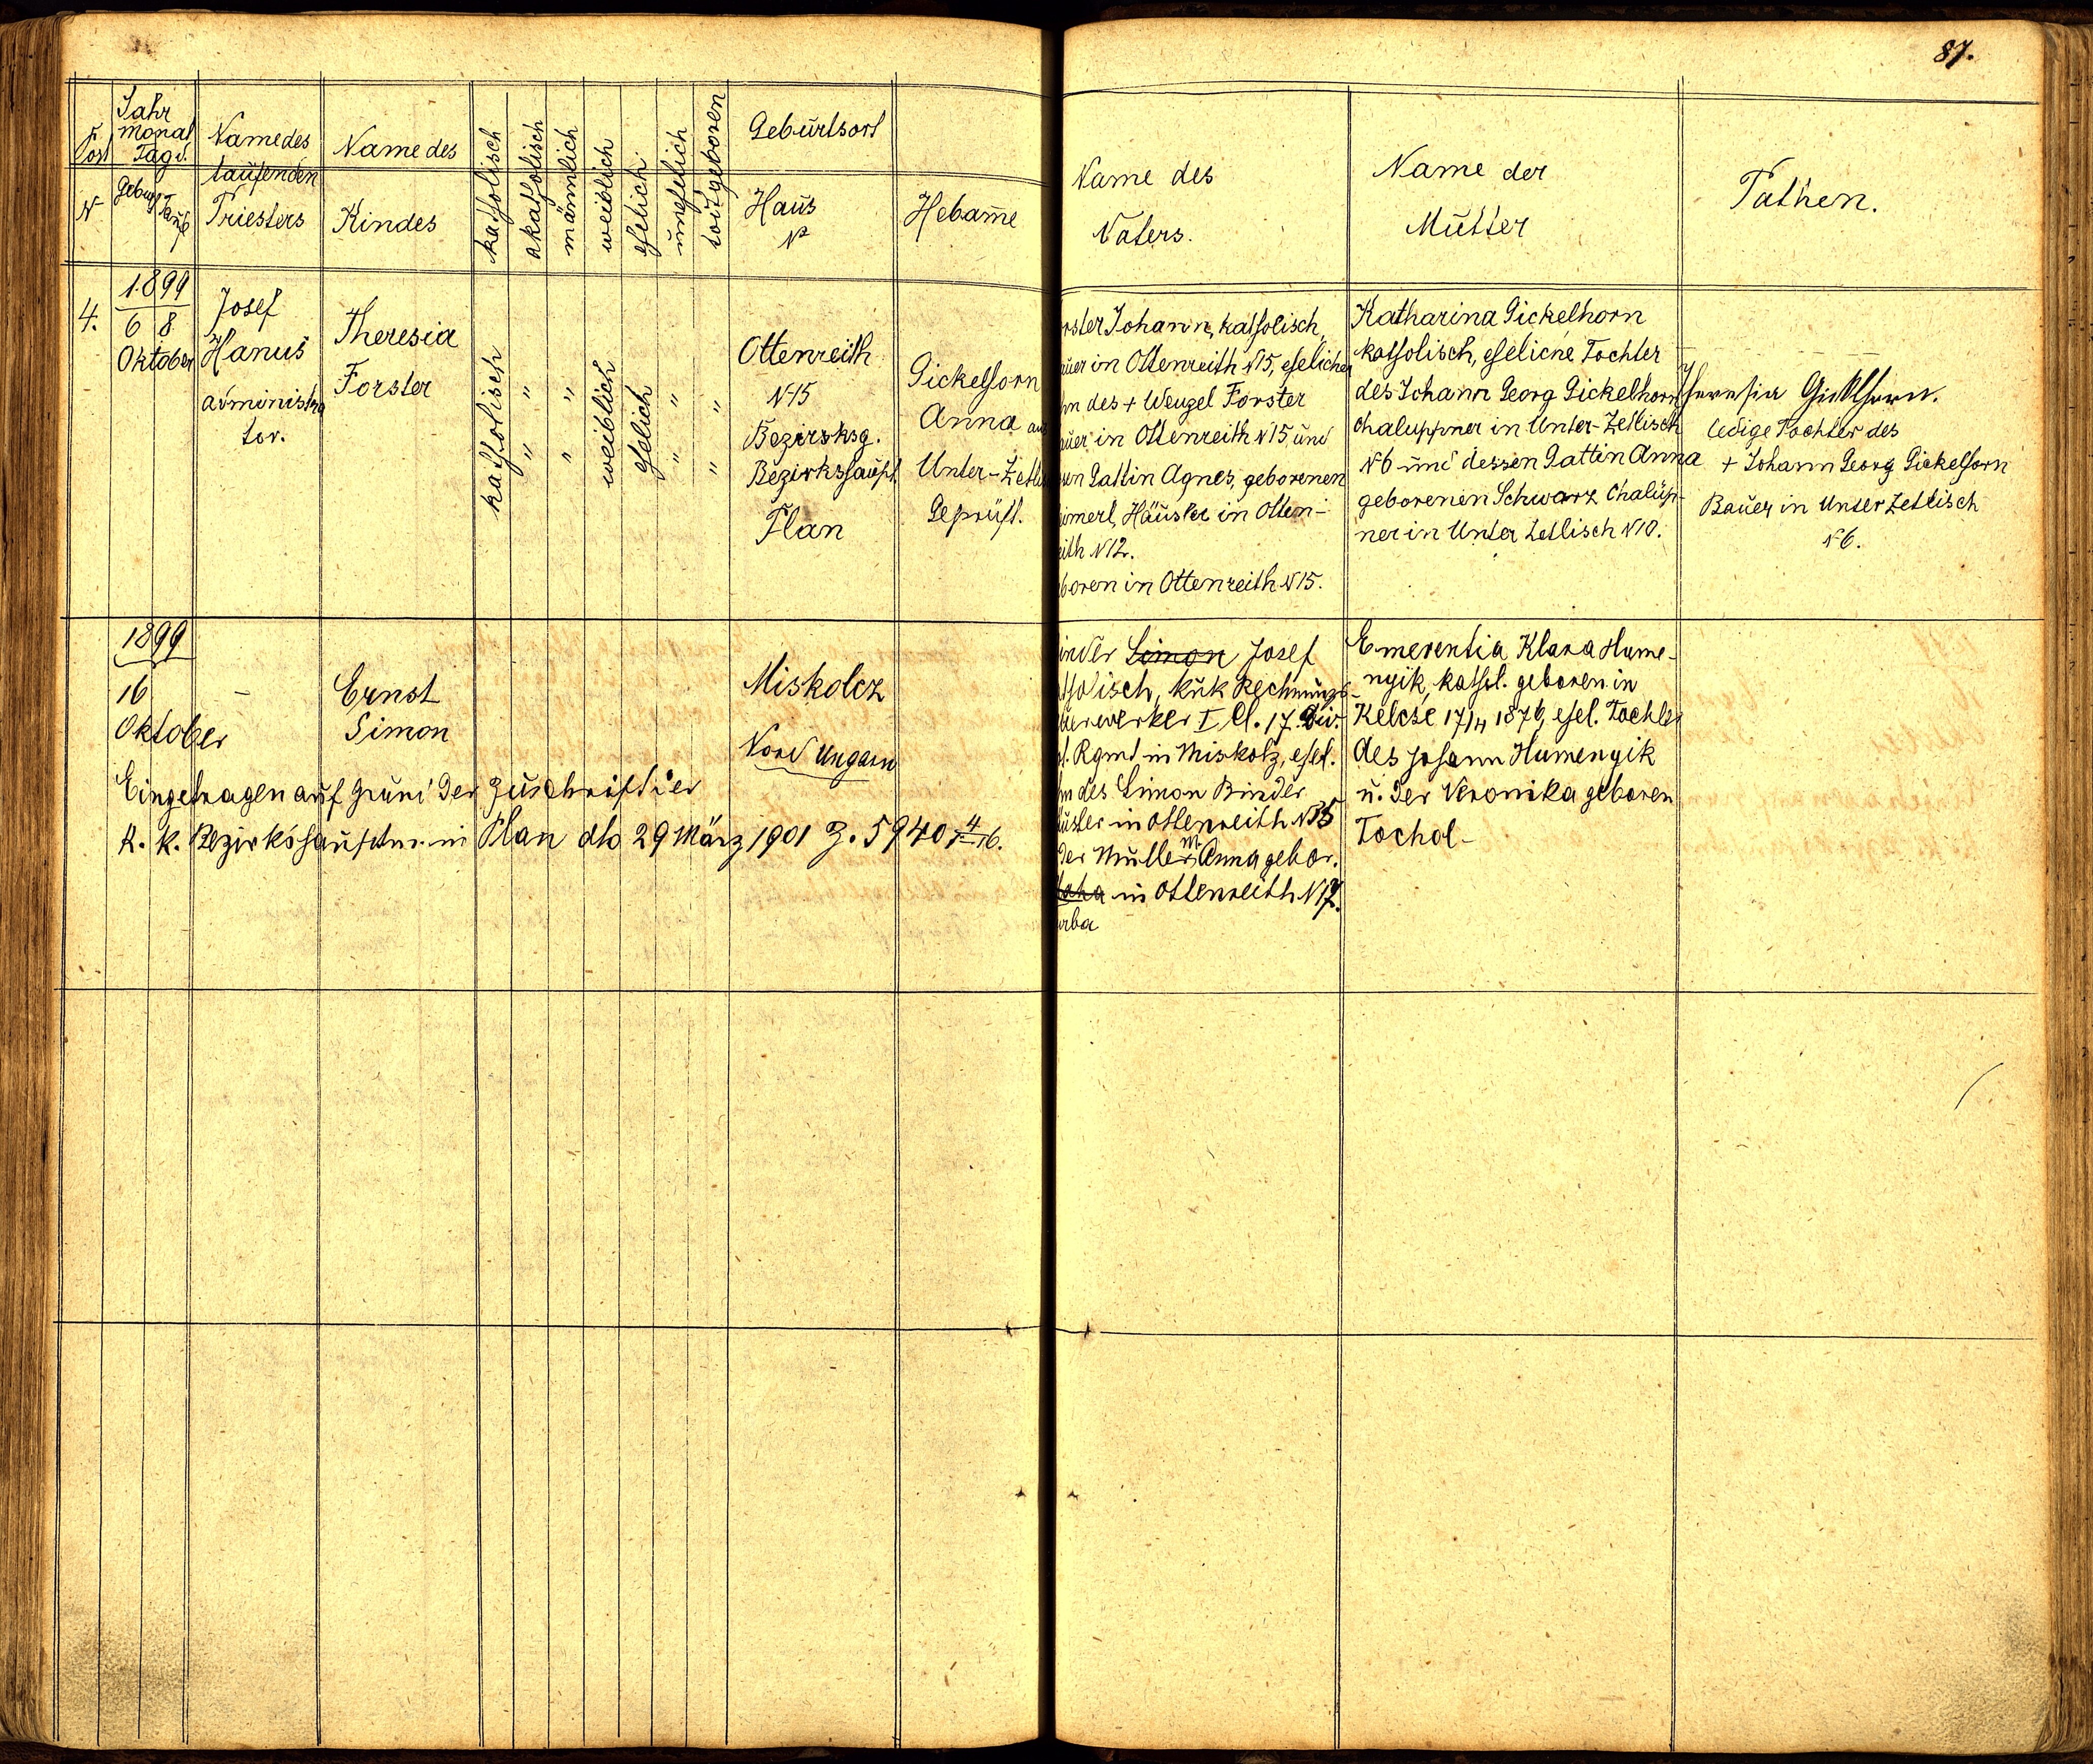 87.
Post
N
Jahr
Monat
Tag d.
Geburt
Taufe
Name des
taufenden
Priesters
Name des
Kindes
katholisch
akatholisch
männlich
weiblich
ehelich
unehelich
todtgeboren
Geburtsort
Haus
N
Hebame
Name des
Vaters.
Name der
Mutter
Pathen.
4.
1899
6 8
Oktober
Josef
Hanuš
administra
tor.
Theresia
Forster
katholisch
" "
" "
weiblich
ehelich
" "
" "
Ottenreith
N 15
Bezirksg.
Bezirkshauptm.
Plan
Gickelhorn
Anna aus
Unter-Zetlisch
Geprüft.
rster Johann, katholisch,
auer in Ottenreith N 15, ehelicher
hn des + Wenzel Forster
auer in Ottenreith N 15 und
sen Gattin Agnes, geborenen
imerl, Häusler in Otten-
eith N 12.
boren in Ottenreith N 15.
Katharina Gickelhorn
katholisch, eheliche Tochter
des Johann Georg Gickelhorn
Chaluppner in Unter-Zetlisch
N 6 und dessen Gattin Anna
geborenen Schwarz Chalup-
ner in Unter Zetlisch N 10.
Theresia Gickelhorn.
ledige Tochter des
+ Johann Georg Gickelhorn
Bauer in Unter Zetlisch
N 6.
1899
16
Oktober
–
Ernst
Simon
Miskolcz
Nord Ungarn
Eingetragen auf Grund der Zuschrift der
K. k. Bezirkshauptm. in Plan dto 29 März 1901 Z. 5940
inder Simon Josef
tholisch, kuk Rechnungs-
uerwerker I Cl. 17. Div.
t. Rgmt in Miskolz, ehel.
hn des Simon Binder
äusler in Ottenreith N 35
der Mutter M. Anna gebor.
in Ottenreith N 17.
urba
Emerentia Klara Hume-
nyik, kathol. geboren in
Kelcse 17/4 1876, ehel. Tochter
des Johann Humenyik
u. der Veronika geboren
Tochol-